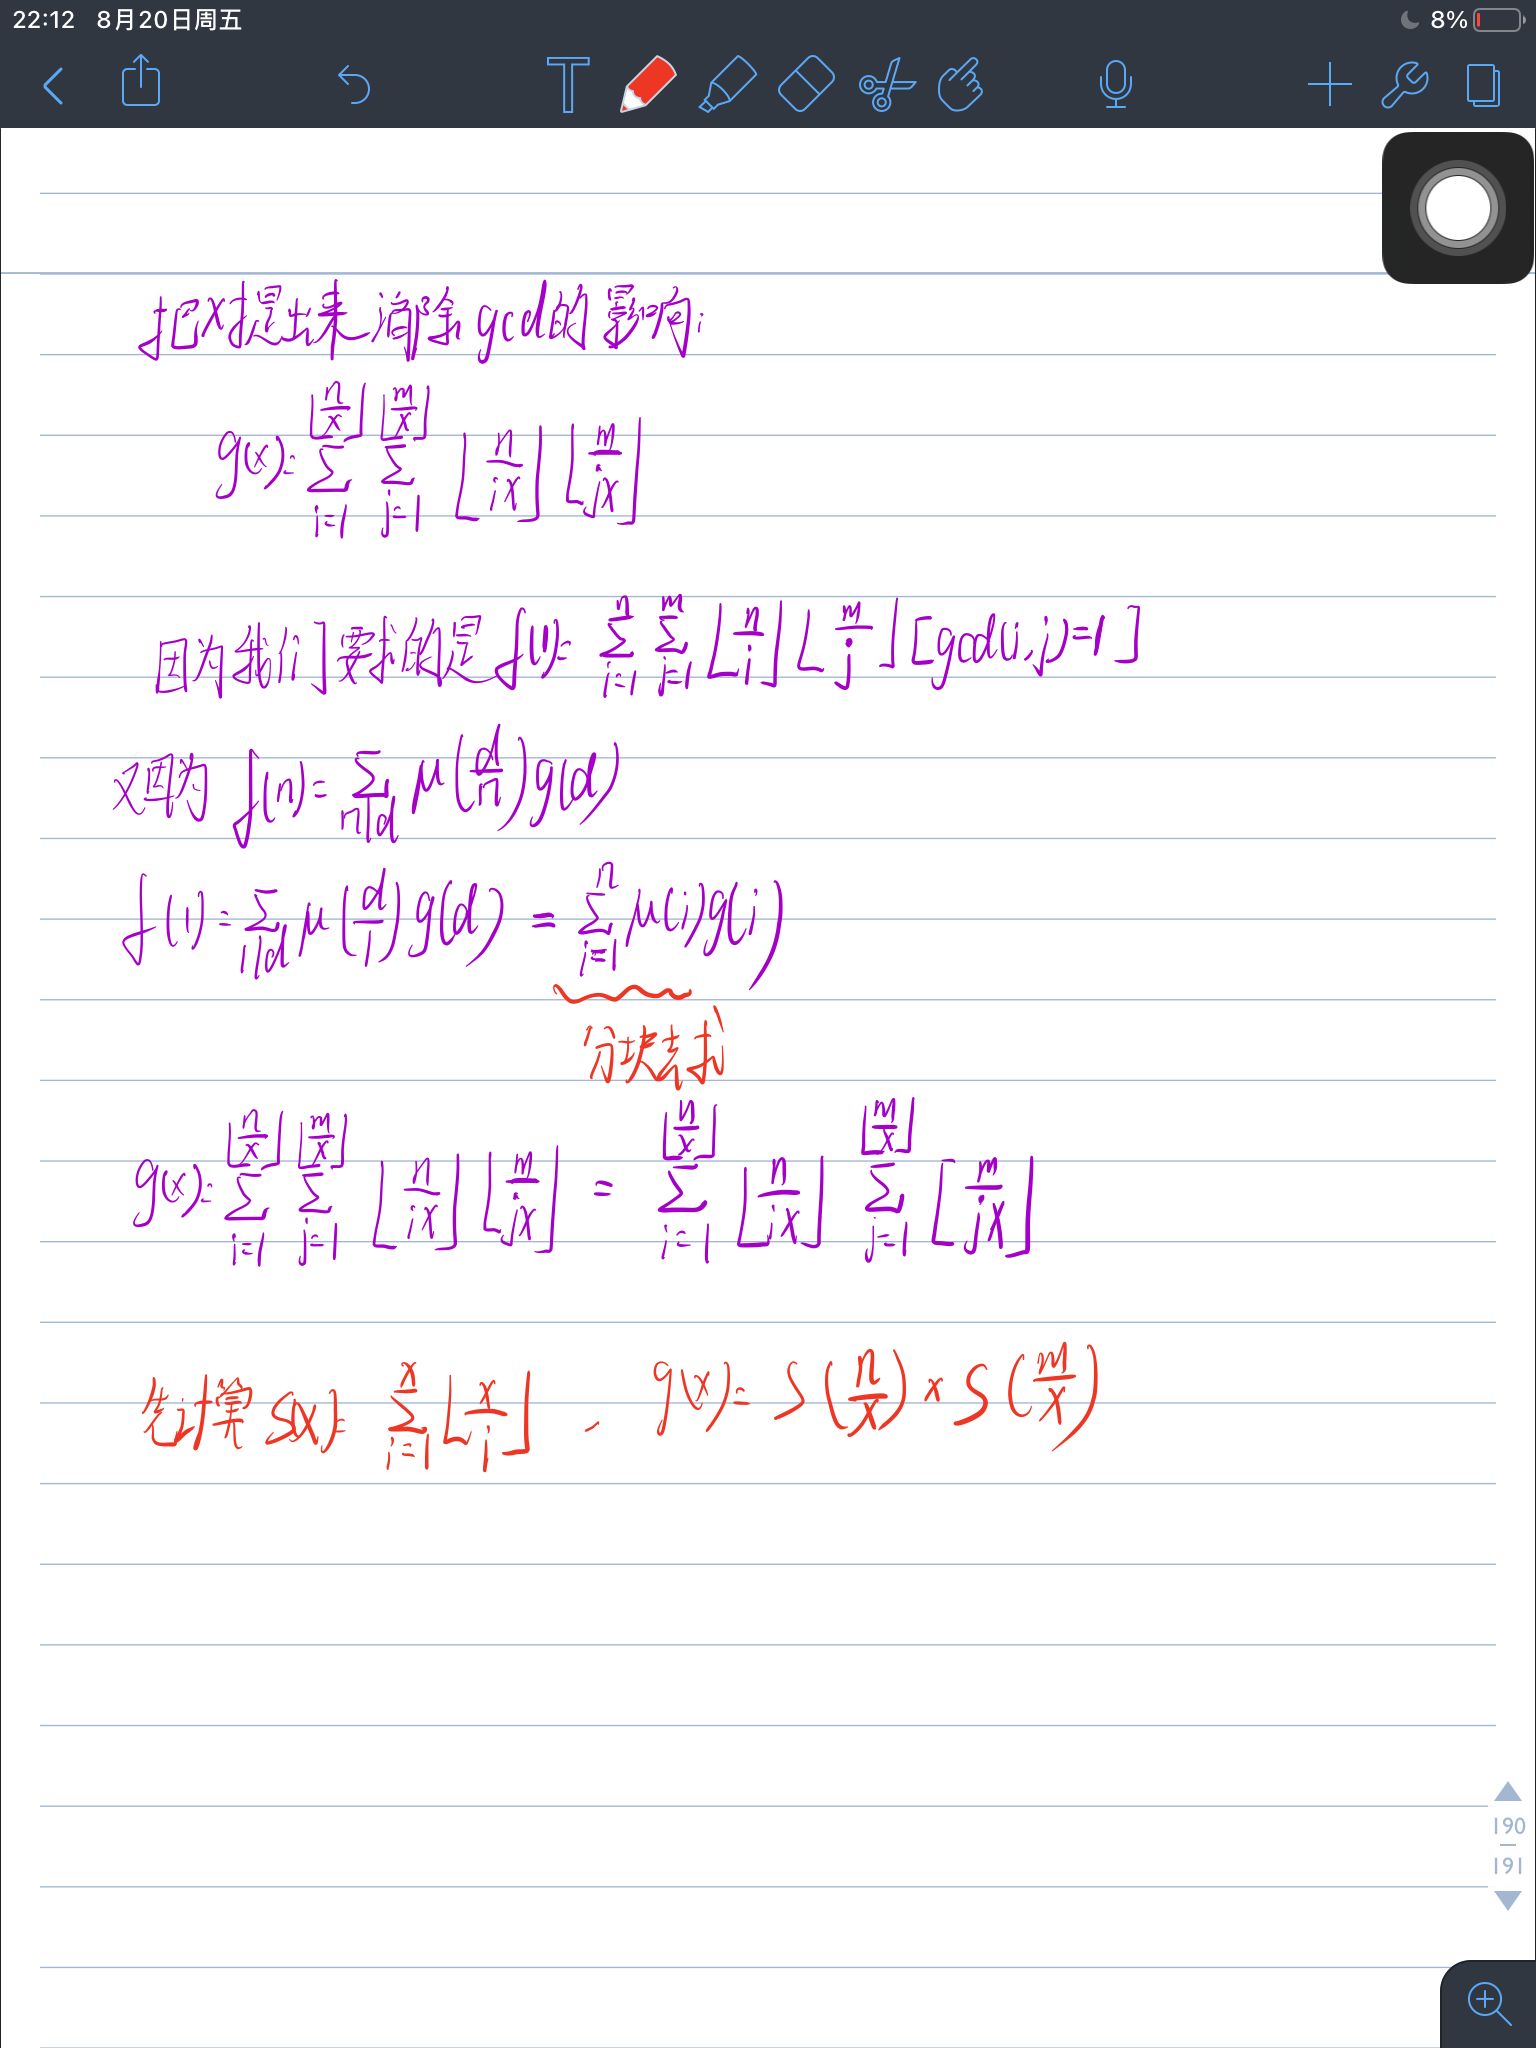 22:12 8月20日周五 8%
把x提出来消除gcd的影响:
g(x)=∑_{i=1}^{⌊n/x⌋} ∑_{j=1}^{⌊m/x⌋} ⌊n/ix⌋ ⌊m/jx⌋
因为我们要求的是 f(1)=∑_{i=1}^{n} ∑_{j=1}^{m} ⌊n/i⌋ ⌊m/j⌋ [gcd(i,j)=1]
又因为 f(n)=∑_{n|d} μ(d/n) g(d)
f(1)=∑_{1|d} μ(d/1) g(d) = ∑_{i=1}^{n} μ(i)g(i)
分块去求
g(x)=∑_{i=1}^{⌊n/x⌋} ∑_{j=1}^{⌊m/x⌋} ⌊n/ix⌋ ⌊m/jx⌋ = ∑_{i=1}^{⌊n/x⌋} ⌊n/ix⌋ ∑_{j=1}^{⌊m/x⌋} [m/jx⌋
先计算 S(x)=∑_{i=1}^{x} ⌊x/i⌋ , g(x)= S(n/x) × S(m/x)
190
191